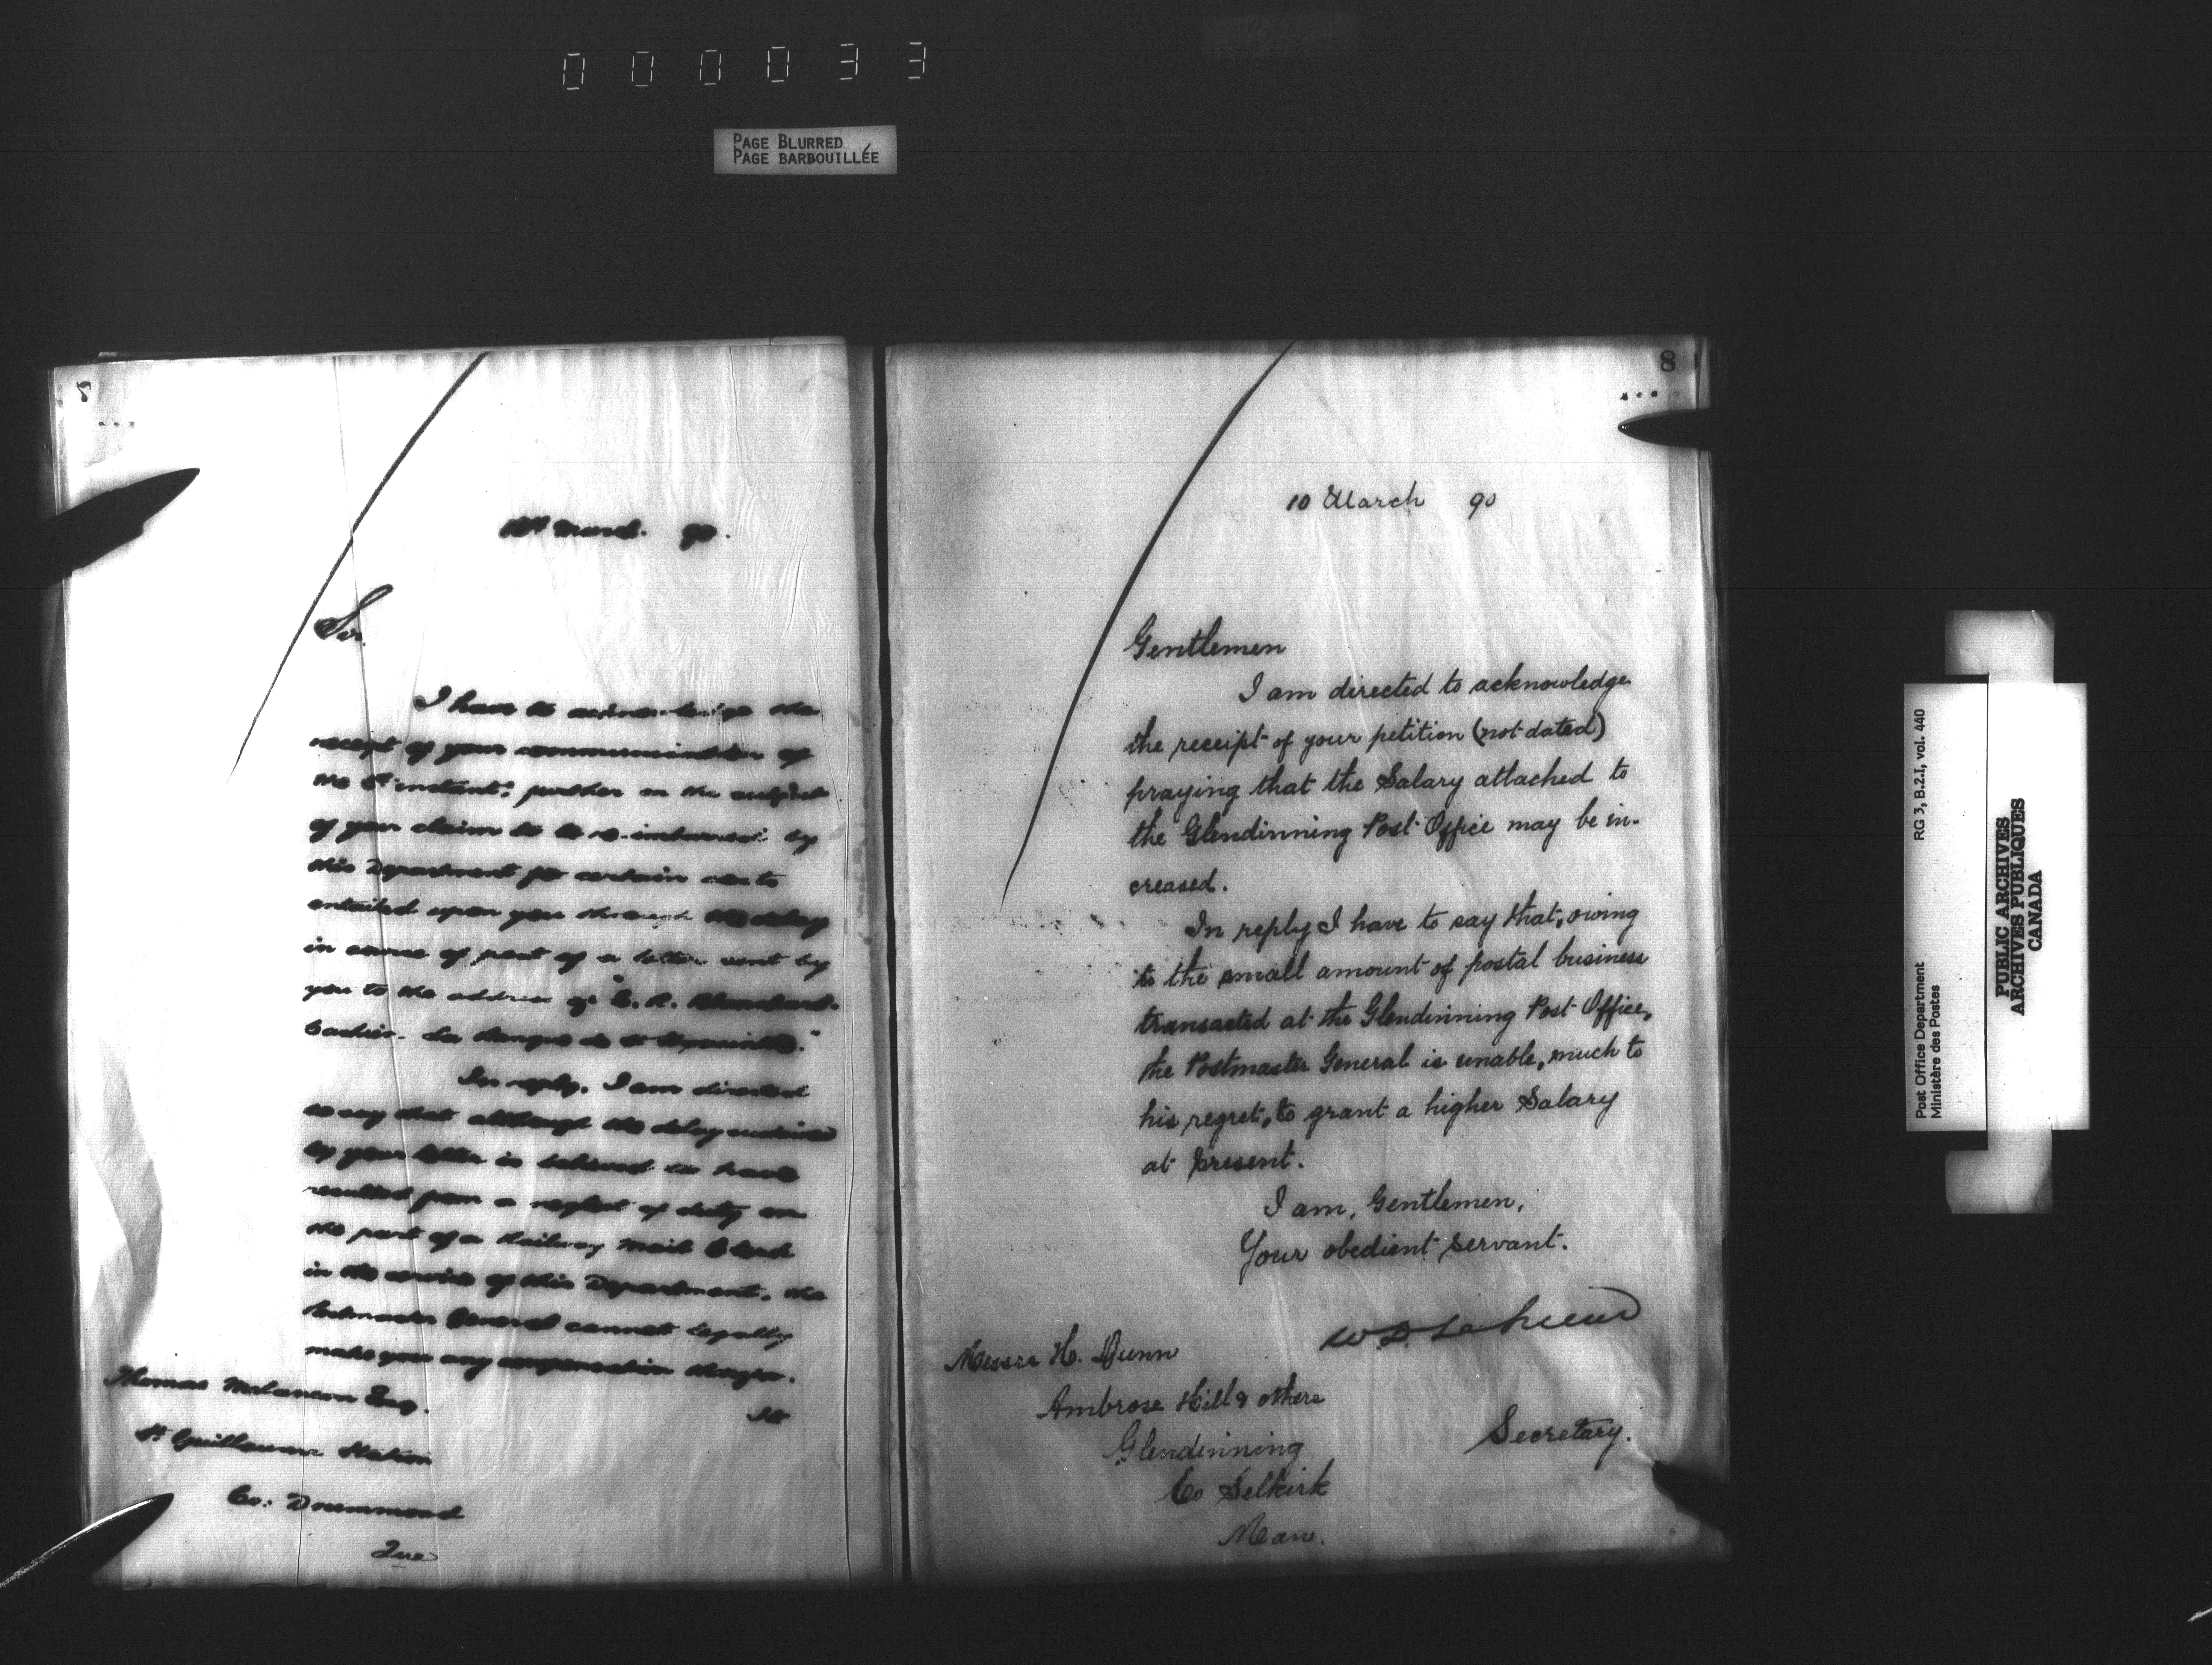 000033
PAGE BLURRED
PAGE BARBOUILLÉE
March. 90.
Sir.
I have to acknowledge the
receipt of your communication of
the instant, further on the subject
of your claim to be re-imbursed by
this Department for certain costs
entailed upon you through the delay
in course of post of a letter sent by
you to the address of "E. A. Blanchard.
Cashier. La Banque de St Hyacinthe."
In reply, I am directed
to say that although the delay sustained
by your letter is believed to have
resulted from a neglect of duty on
the part of a Railway Mail Clerk
in the service of this Department, the
Postmaster General cannot legally
make you any compensation therefor.
Thomas Melancon Esq.
St Guillaume Station
Co: Drummond
Que
8
10 March 90
Gentlemen
I am directed to acknowledge
the receipt of your petition (not dated)
praying that the Salary attached to
the Glendinning Post Office may be in-
creased.
In reply I have to say that, owing
to the small amount of postal business
transacted at the Glendinning Post Office,
the Postmaster General is unable, much to
his regret, to grant a higher Salary
at present.
I am, Gentlemen,
Your obedient servant.
W. D. LeSueur
Secretary.
Messrs H. Gunn
Ambrose Hill & others
Glendinning
Co Selkirk
Man.
Post Office Department RG 3, B.2.I, vol. 440
Ministère des Postes
PUBLIC ARCHIVES
ARCHIVES PUBLIQUES
CANADA